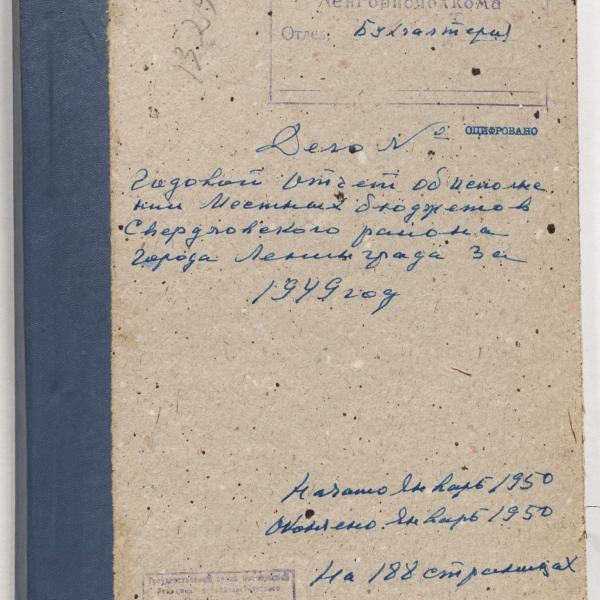 Ленгорисполкома
Отдел Бухгалтерия
Дело №
ОЦИФРОВАНО
Годовой отчет об исполне
нии Местных бюджетов
Свердловского района
Города Ленинграда за
1949 год
Начато Январь 1950
Окончено Январь 1950
На 188 страницах
Государственный архив